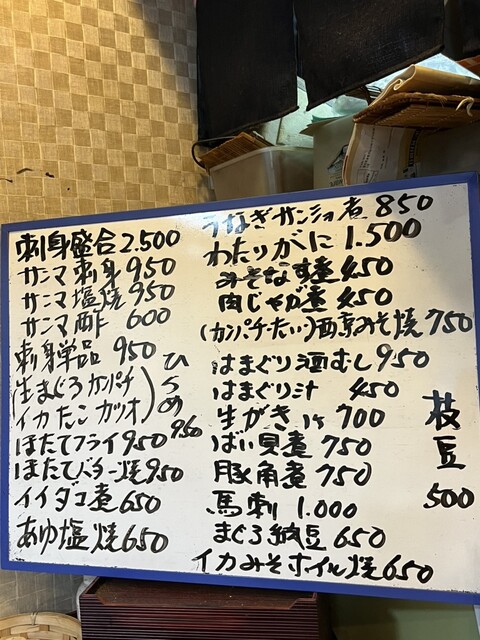 刺身盛合2.500
サンマ刺身950
サンマ塩焼950
サンマ酢 600
刺身単品 950
(生まぐろカンパチ
イカたこカツオ)
ひらめ
950
ほたてフライ950
ほたてバター焼950
イイダコ煮650
あゆ塩焼650
うなぎサンショ煮850
わたりがに1.500
みそなす煮450
肉じゃが煮450
(カンパチ・たい)西京みそ焼750
はまぐり酒むし950
はまぐり汁 450
生がき 700
ばい貝煮750
豚角煮750
馬刺1.000
まぐろ納豆650
イカみそホイル焼650
枝豆
500